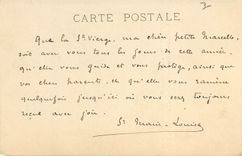 3
CARTE POSTALE
Que la Ste Vierge, ma chère petite Marcelle,
soit avec vous tous les jours de cette année,
qu'elle vous guide et vous protège, ainsi que
vos chers parents, et qu'elle vous ramène
quelquefois jusqu'ici où vous serez toujours
reçue avec joie.
Sr Marie-Louise